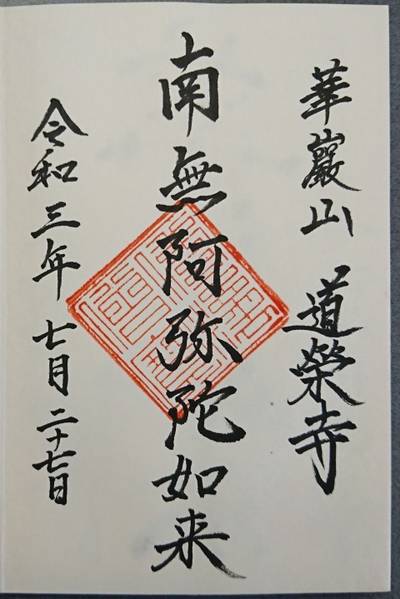 華巖山 道榮寺
南無阿弥陀如来
令和三年七月二十七日